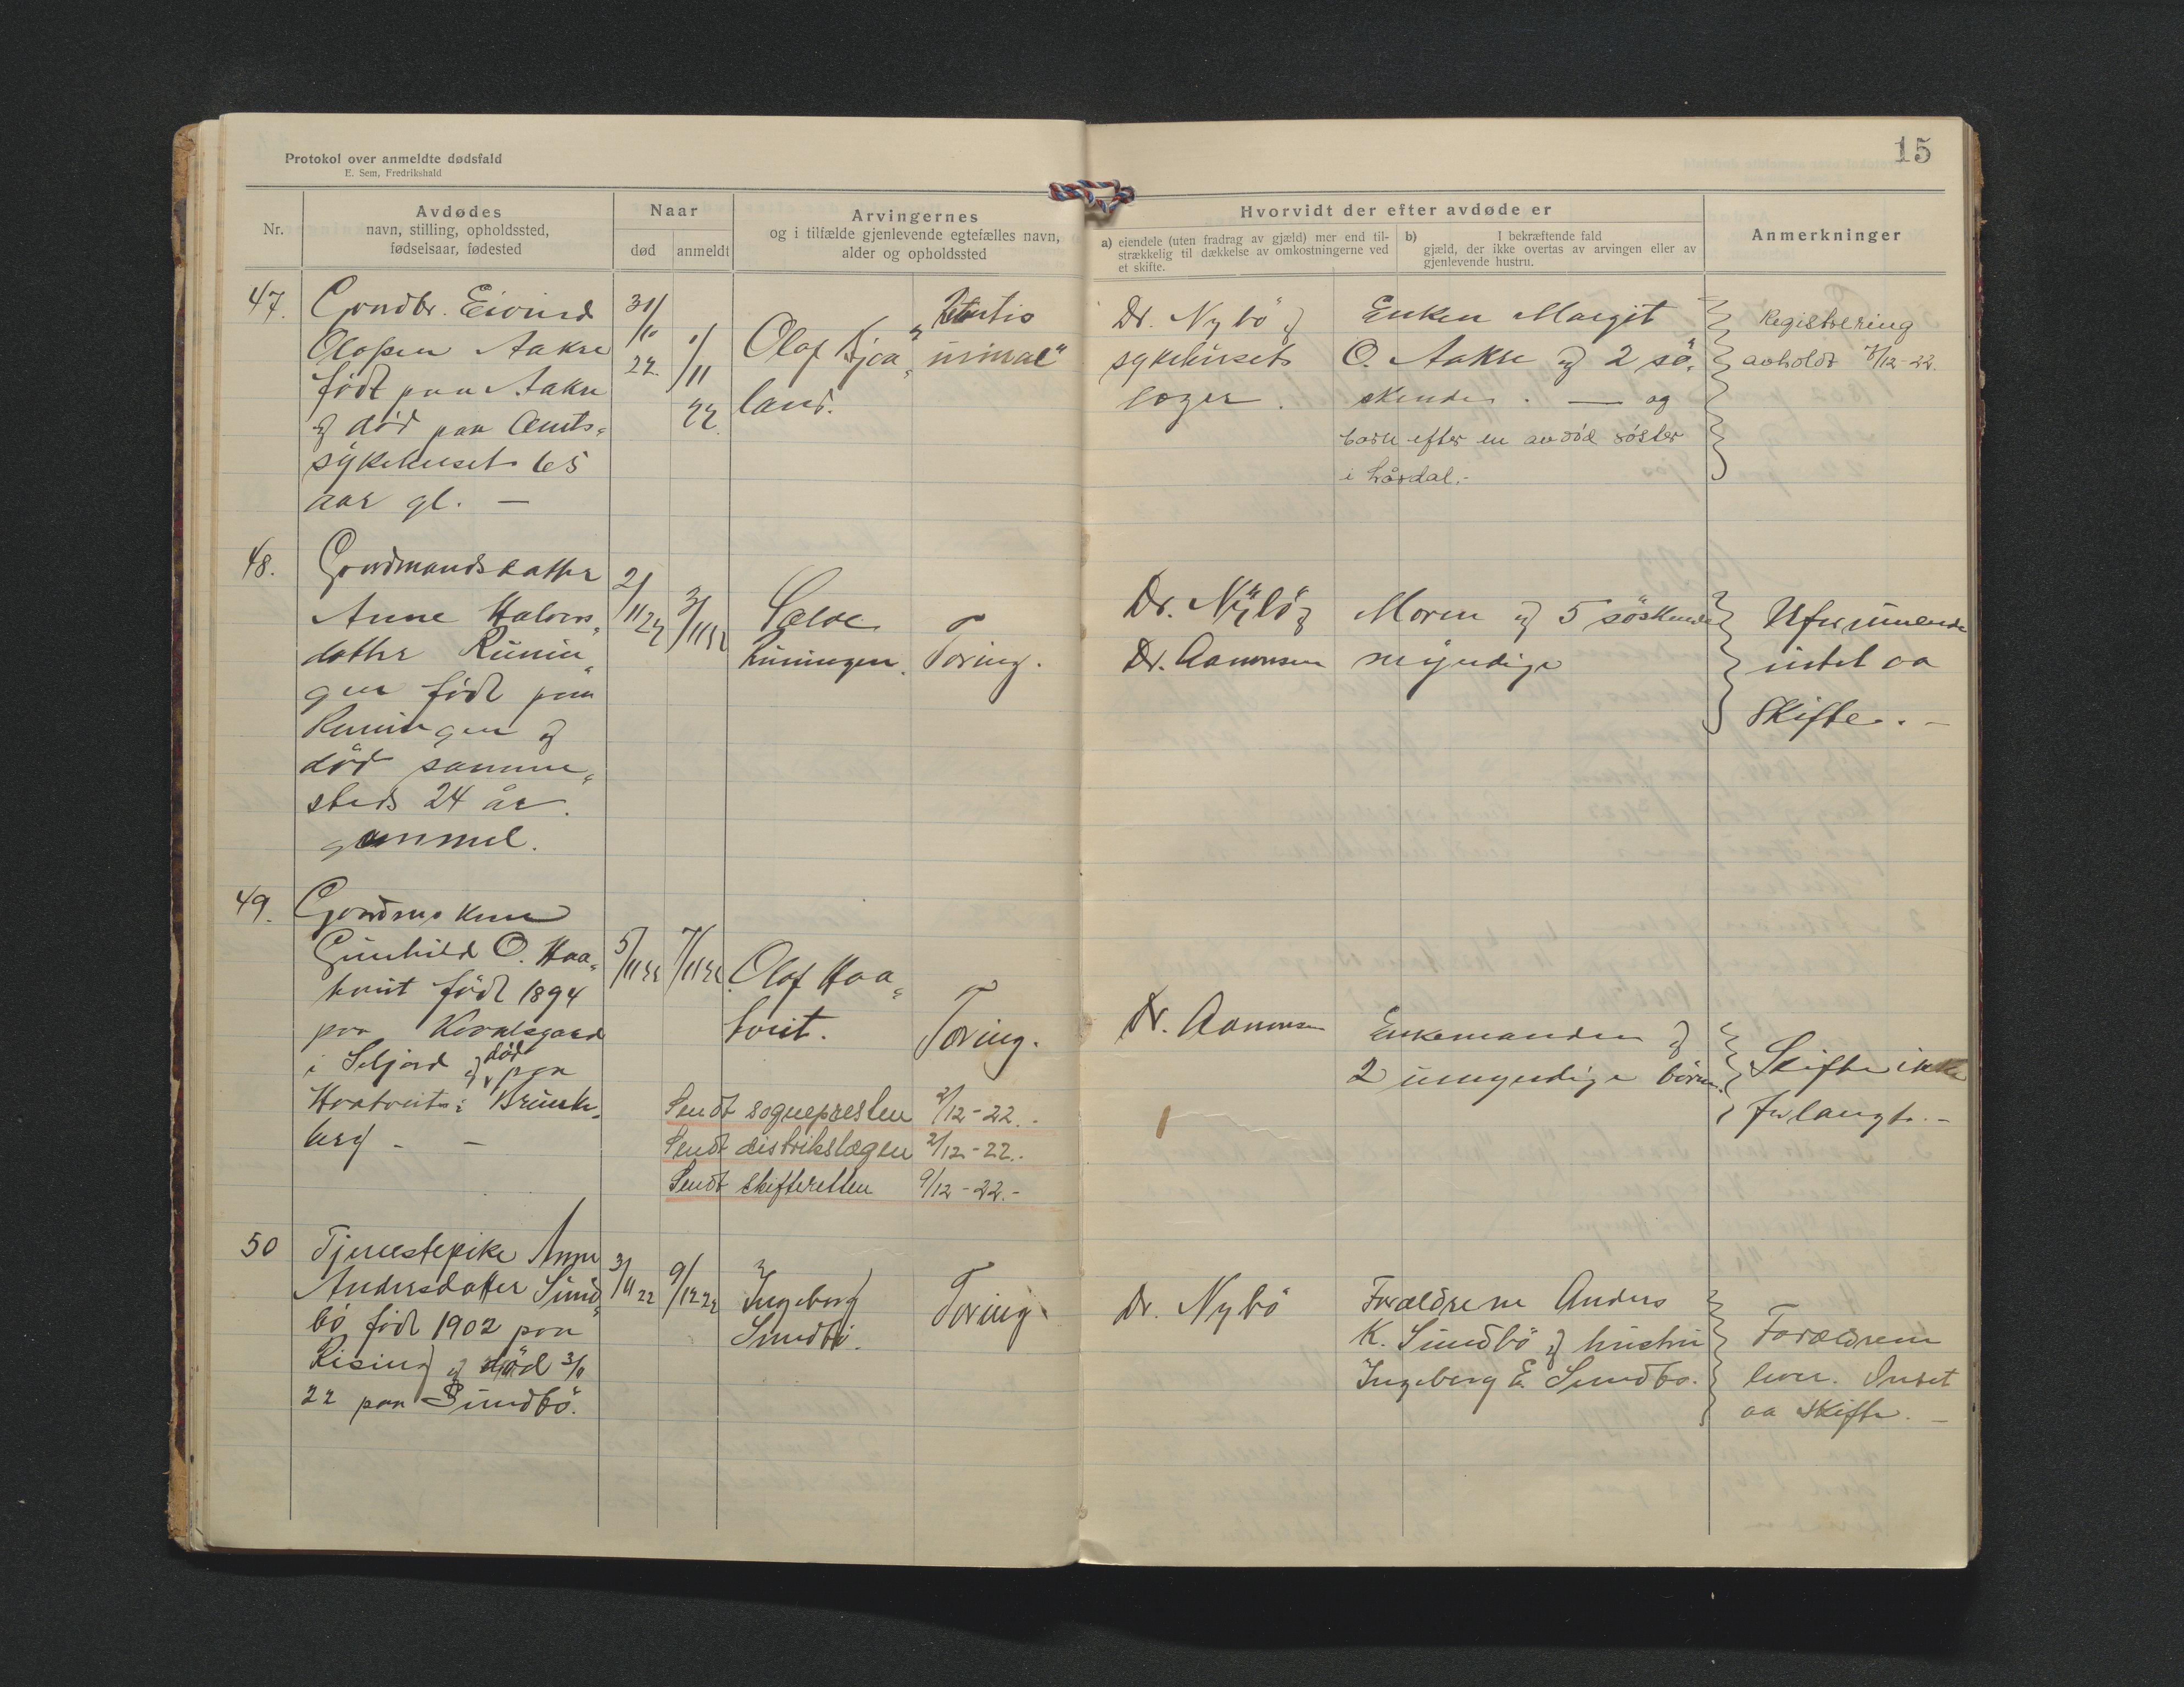 15
Protokol over anmeldte dødsfald
E. Sem, Fredrikshald
Nr.
Avdødes
navn, stilling, opholdssted,
fødselsaar, fødested
Naar
død
anmeldt
Arvingernes
og i tilfælde gjenlevende egtefælles navn,
alder og opholdssted
Hvorvidt der efter avdøde er
a) eiendele (uten fradrag av gjæld) mer end til-
strækkelig til dækkelse av omkostningerne ved
et skifte.
b) I bekræftende fald
gjæld, der ikke overtas av arvingen eller av
gjenlevende hustru.
Anmerkninger
47. Gardbr. Eivind
Olavsen Aakre
født paa Aakre
og død paa Amts-
sykehuset 65
aar gl. —
31/10 22
1/11 22
Olaf Kjea-
land.
Dr. Nybö og
sykehusets
læger.
Enken Margit
O. Aakre og 2 sö-
skende. — og
barn efter en avdöd söster
i Lårdal.-
Registrering
avholdt /12-22.
48. Gardmandsdatter
Anne Halvors-
datter Runin-
gen født paa
Runingen og
död samme-
steds 24 år
gammel.
2/11 22
3/11 22
Runingen.
Toring.
Dr. Nybö og
Dr. Aanonsen
Moren og 5 söskende
myndige
intet aa
skifte. -
49. Gardmskone
Gunhild O. Haa-
tveit född 1894
paa Kivlesgaard
i Seljord og död paa
Haatveit i Brunk-
berg - -
5/11 22
7/11 22
Olaf Haa-
tveit.
Toring.
Dr. Aanonsen
Enkemanden og
2 umyndige börn.
Skifte ikke
forlangt. -
Sendt sognepresten 2/12-22.-
Sendt distrikslægen 2/12-22.-
Sendt skifteretten 9/12-22.-
50 Tjenestepike Anne
Andersdatter Sund-
bö född 1902 paa
Rising og död 3/11
22 paa Sundbö.
3/11 22
9/12 22
Ingeborg
Sundbö.
Toring.
Dr. Nybö
Forældrene Anders
K. Sundbö og hustru
Ingeborg E. Sundbö.
Forældrene
lever. Intet
aa skifte. -